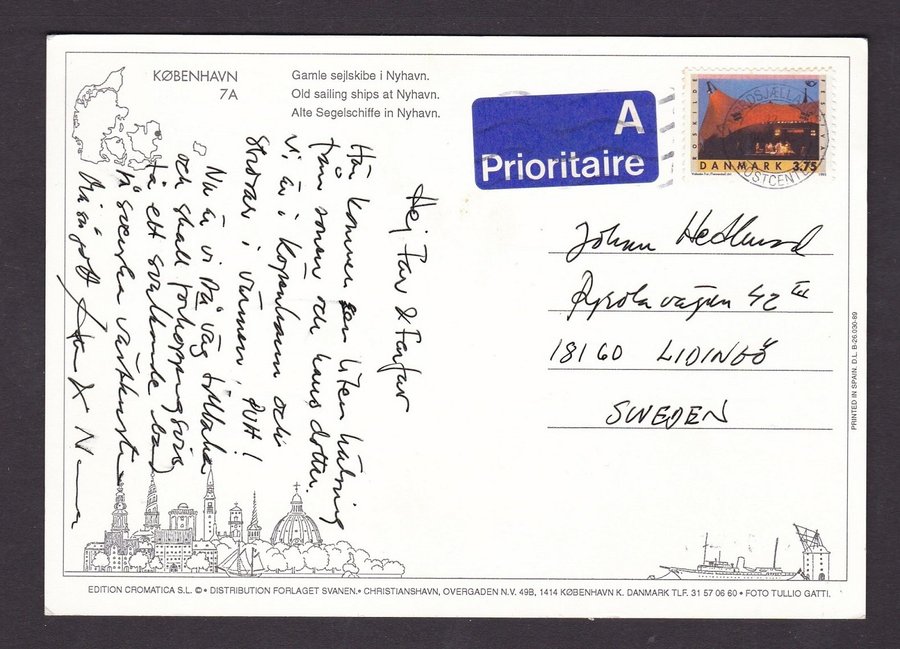 KØBENHAVN
7A
Gamle sejlskibe i Nyhavn.
Old sailing ships at Nyhavn.
Alte Segelschiffe in Nyhavn.
A
Prioritaire
ROSKILDE FESTIVAL
DANMARK 3.75
Hej Far & Farfar
Här kommer en liten hälsning
från sonen och hans dotter.
Vi är i Köpenhamn och
strövar i värmen, puh!
Nu är vi på väg tillbaka
och skall förhoppningsvis
ta ett svalkande bad
på svenska västkusten
Må så gott
Johan Hedlund
vägen 42 III
181 60 LIDINGÖ
SWEDEN
PRINTED IN SPAIN. D.L. B-26.030-89
EDITION CROMATICA S.L. © • DISTRIBUTION FORLAGET SVANEN. • CHRISTIANSHAVN, OVERGADEN N.V. 49B, 1414 KØBENHAVN K. DANMARK TLF. 31 57 06 60 • FOTO TULLIO GATTI.